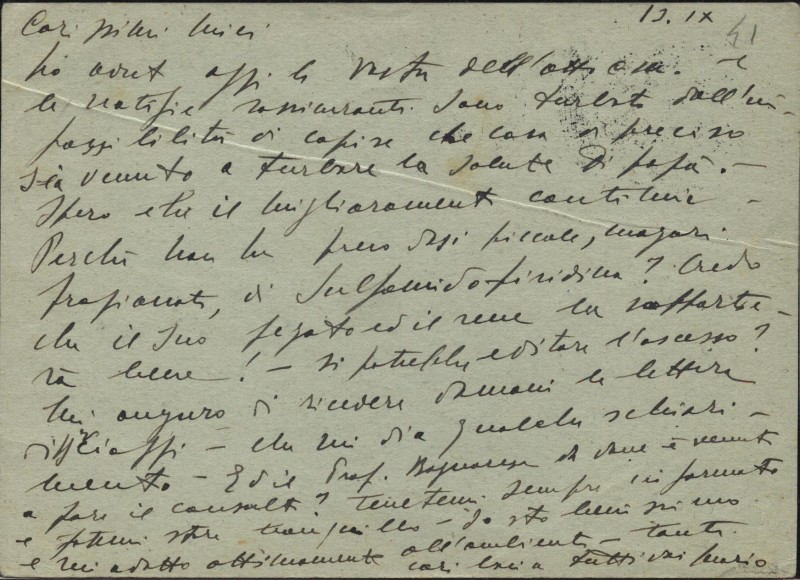 13.IX
41
Cari miei
ho avut oggi la vostra dell'otto c.m. e
le notizie rassicuranti. Sono turbato dall'im-
possibilità di capire che cosa di preciso
sia venuto a turbare la salute di papà. -
Spero che il miglioramento continui -
Perché non ha preso dosi piccole, magari
frazionate, di Sulfamidopiridina? Credo
che il suo fegato ed il rene la sopporte-
rà bene! - si potrebbe evitare l'ascesso?
Mi auguro di ricevere domani la lettera
di - che mi dia qualche schiari-
mento - Ed il Prof. da dove è venuto
a fare il consulto? Tenetemi sempre informato
e potermi stare tranquillo - Io sto benissimo
e mi adatto ottimamente all'ambiente - tanti
cari baci a tutti voi Mario